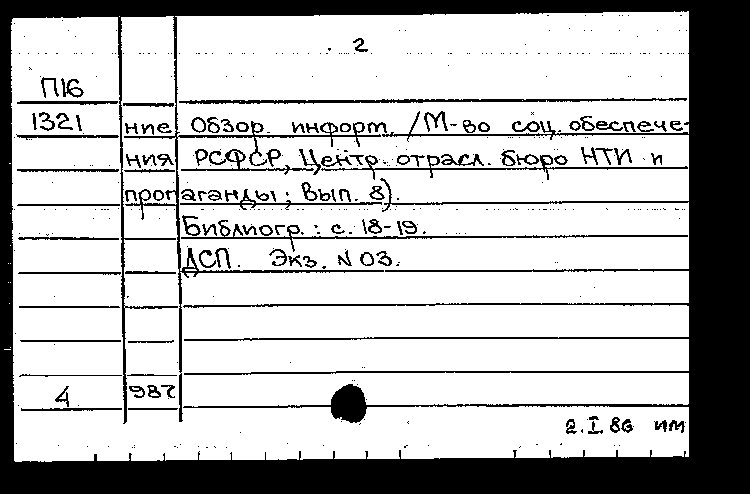 2
П16
1321 ние Обзор. информ. /М-во соц. обеспече-
ния РСФСР, Центр. отрасл. бюро НТИ и
пропаганды; Вып. 8).
Библиогр.: с. 18-19.
ДСП. Экз. N 03.
4 987
2.I.86 им